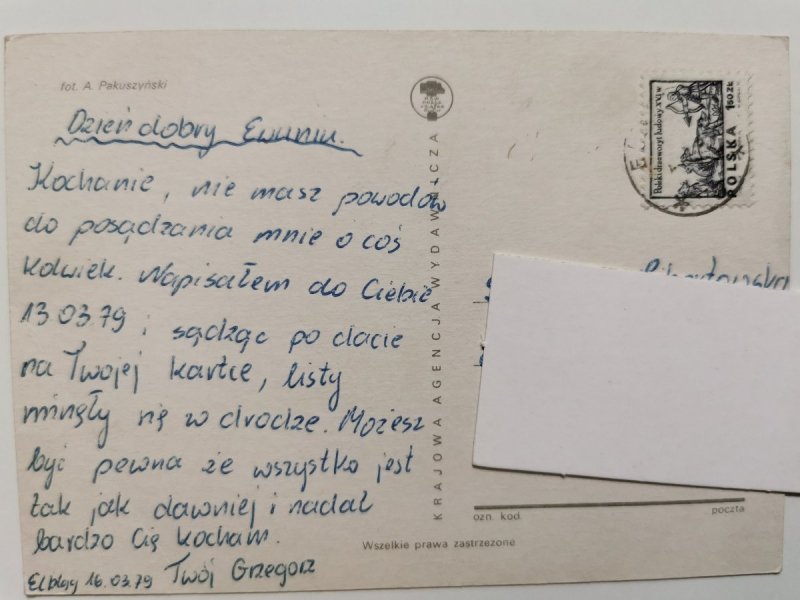 fot. A. Pakuszyński
Dzień dobry Ewuniu.
Kochanie, nie masz powodów
do posądzania mnie o coś
kolwiek. Napisałem do Ciebie
13.03.79 i sądząc po dacie
na Twojej kartce, listy
minęły się w drodze. Możesz
być pewna że wszystko jest
tak jak dawniej i nadal
bardzo Cię kocham.
Elbląg 16.03.79 Twój Grzegorz
KRAJOWA AGENCJA WYDAWNICZA
Wszelkie prawa zastrzeżone
Polski drzeworyt ludowy XVI w.
POLSKA 1.50 ZŁ
ozn. kod
poczta